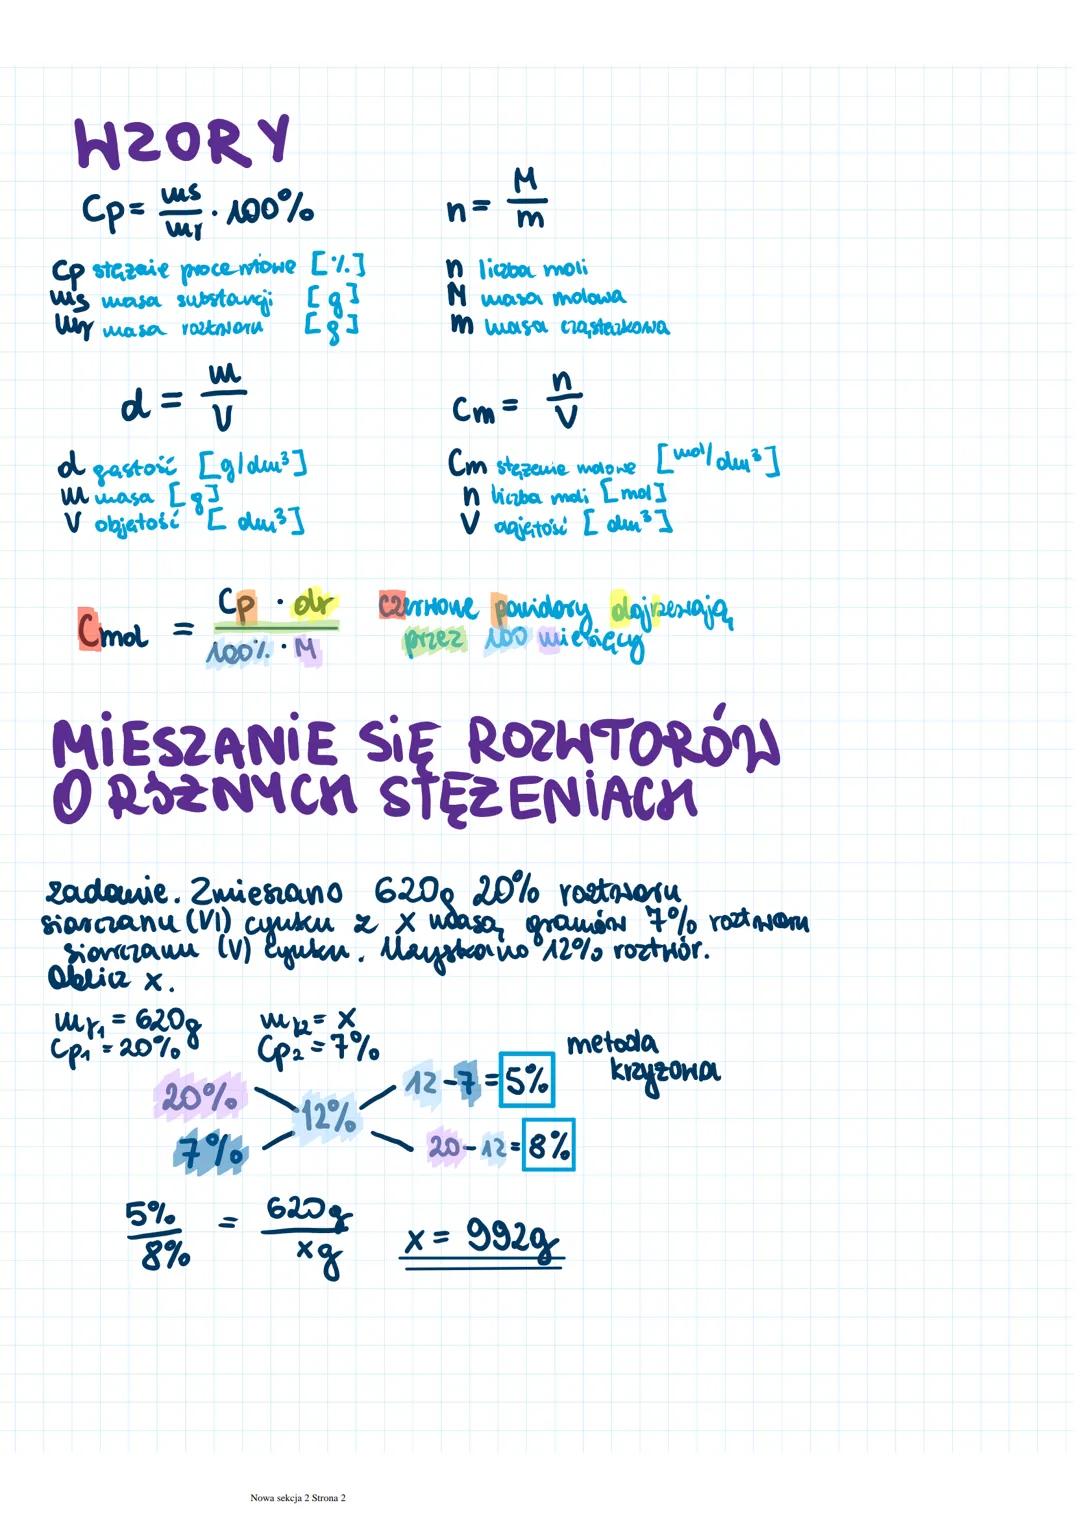 WZORY
Cp = ms/mr · 100%
n = M/m
Cp stężenie procentowe [%]
ms masa substancji [g]
mr masa roztworu [g]
n liczba moli
M masa molowa
m masa cząsteczkowa
d = m/V
Cm = n/V
d gęstość [g/dm³]
m masa [g]
V objętość [dm³]
Cm stężenie molowe [mol/dm³]
n liczba moli [mol]
V objętość [dm³]
Cmol = Cp · dr / 100% · M
czerwone pomidory dojrzewają
przez 100 miesięcy
MIESZANIE SIĘ ROZWTORÓW
O RÓŻNYCH STĘŻENIACH
zadanie. Zmieszano 620g 20% roztworu
siarczanu (VI) cynku z x masą gramów 7% roztworu
siarczanu (V) cynku. Uzyskano 12% roztwór.
Oblicz x.
mr₁ = 620g
mr₂ = x
Cp₁ = 20%
Cp₂ = 7%
metoda
krzyżowa
20%
12 - 7 = 5%
12%
7%
20 - 12 = 8%
5%/8% = 620g/xg
x = 992g
Nowa sekcja 2 Strona 2